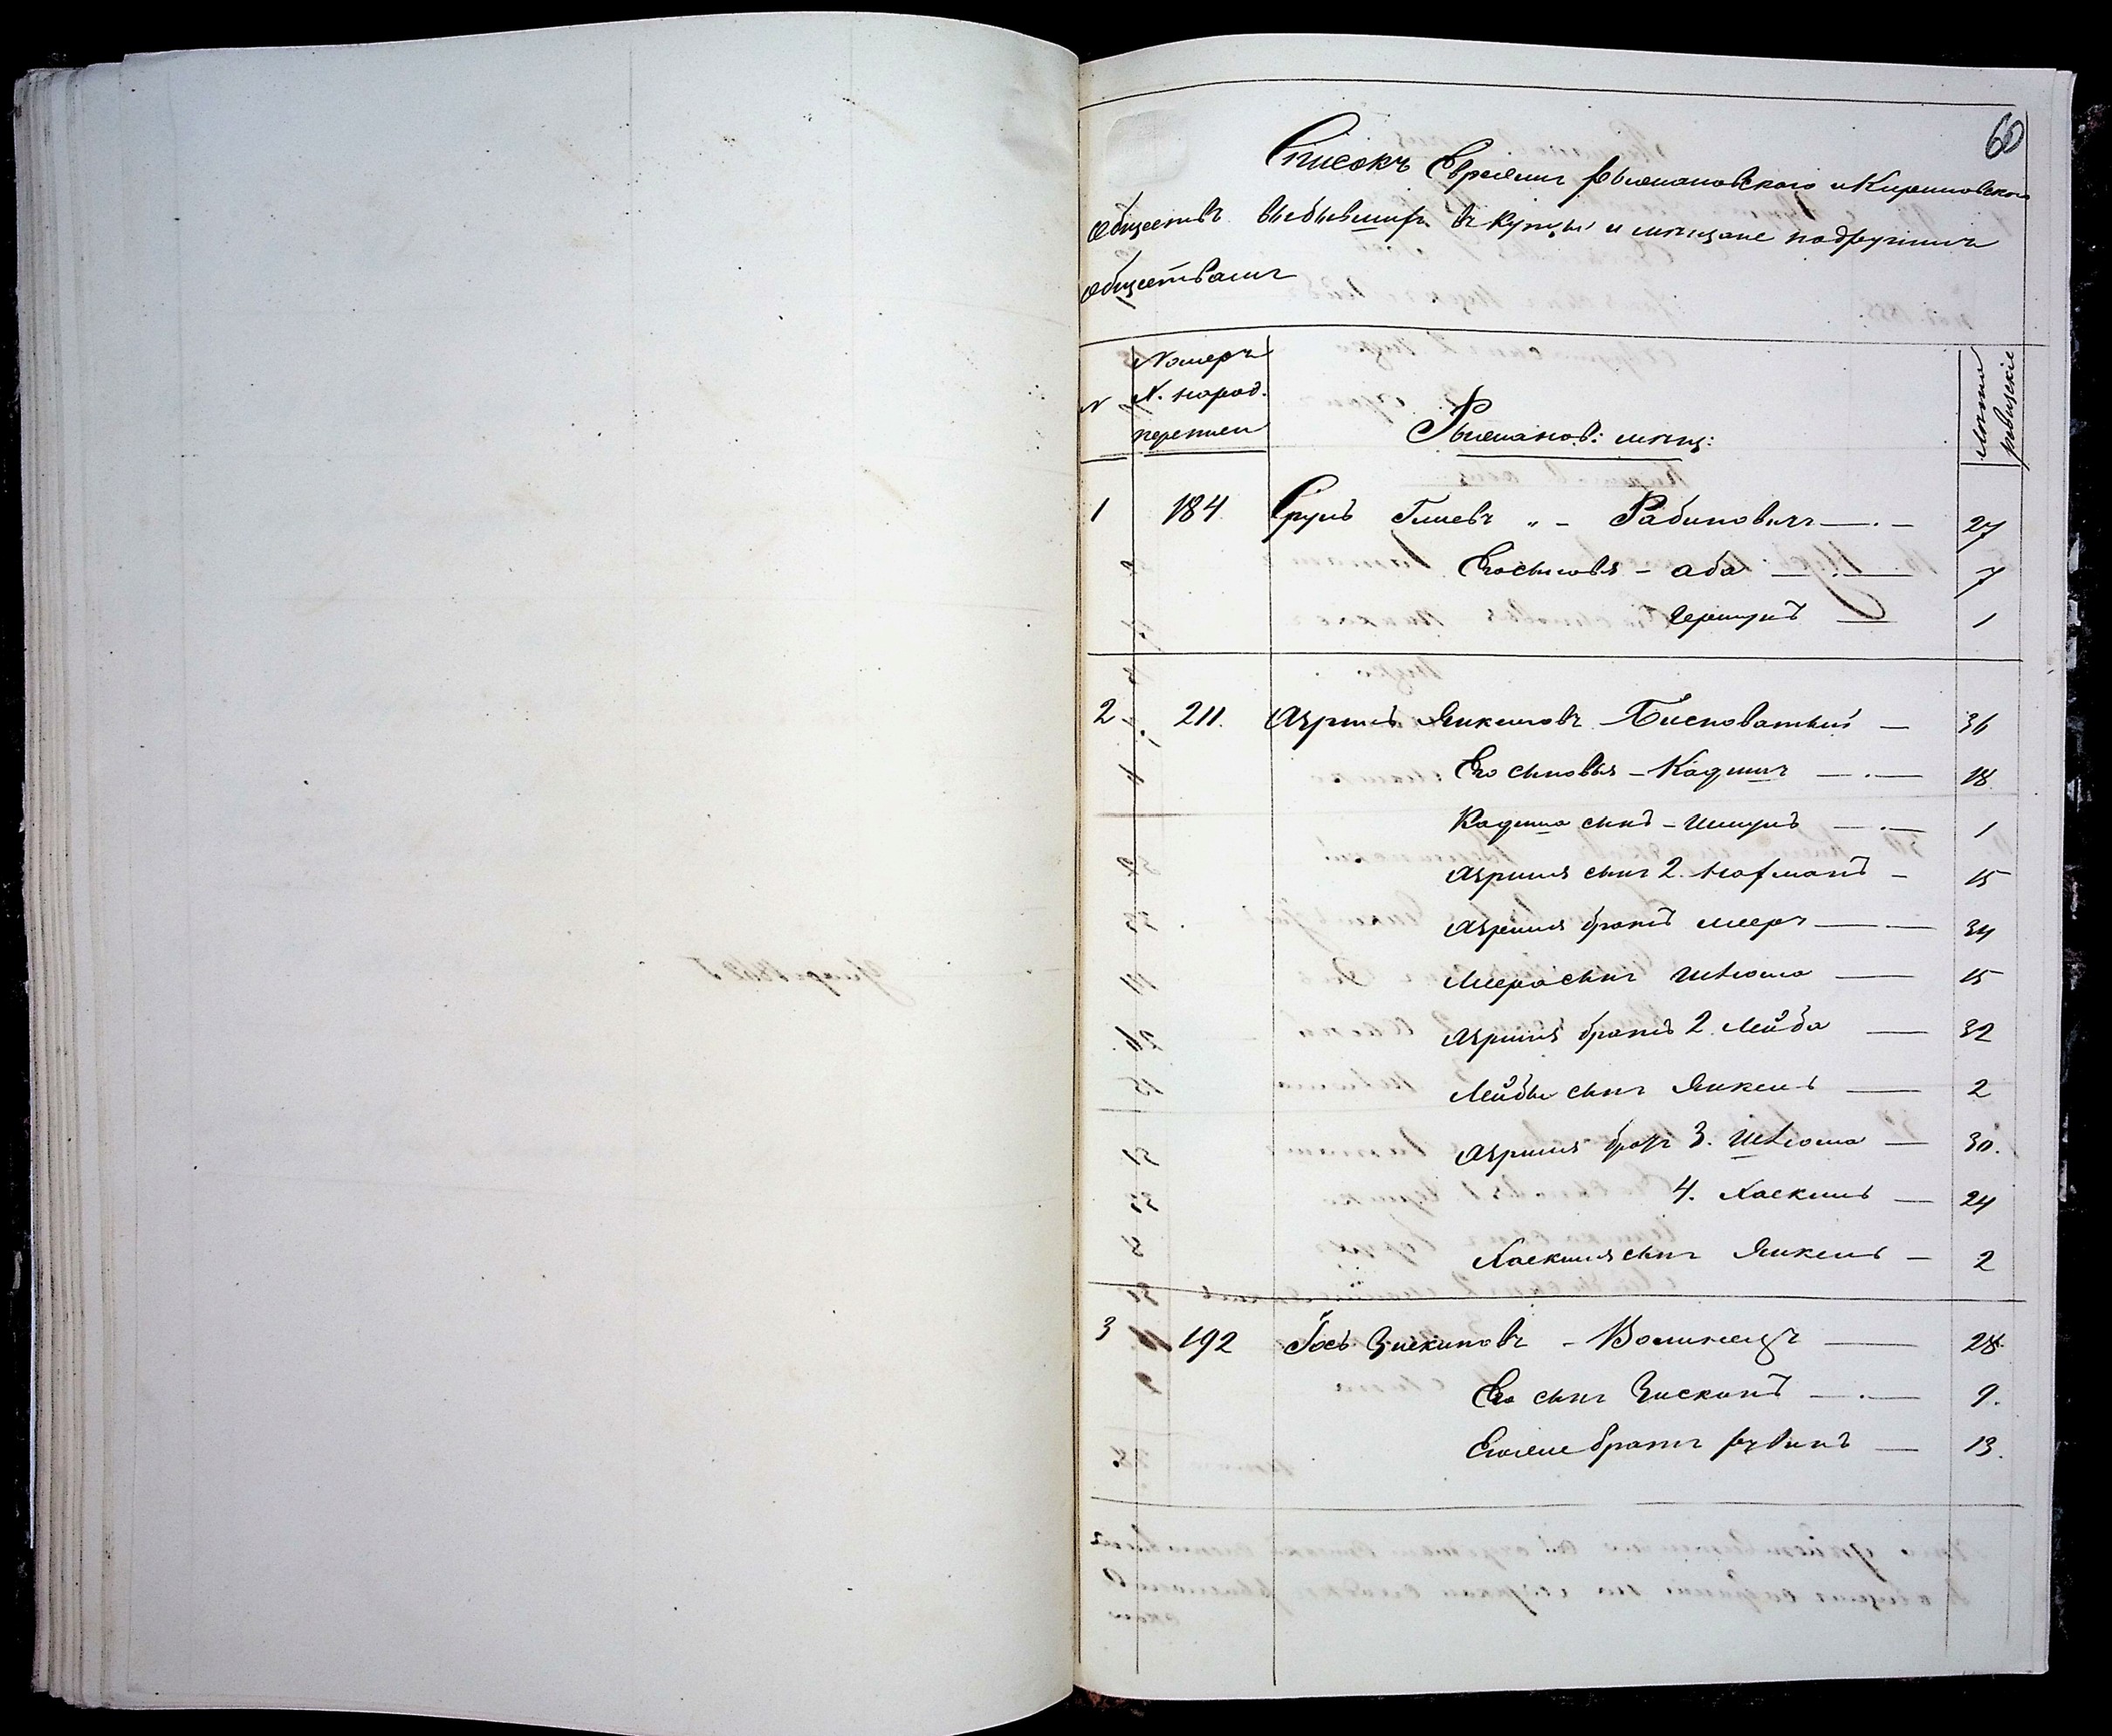 60
Списокъ Евреямъ Рыжановскаго и Кириловскаго
обществъ выбывшихъ въ купцы и мѣщане по другимъ
обществамъ
N
Номеръ
N. народ.
переписи
Рыжанов: мѣщ:
Лѣта
ревизскіе
1 184 Сруль Гилевъ „ – Рабиновичъ — 27
Его сыновья – Аба — 7
Гершунъ — 1
2 211. Азриль Янкелевъ Тисноватый — 36
Его сыновья – Кадишъ — 18
Кадиша сынъ – Шмуль — 1
Азриля сынъ 2. Нахманъ – 15
Азриля братъ Мееръ — 34
Меера сынъ Шлёма — 15
Азриля братъ 2. Лейба — 32
Лейбы сынъ Янкель — 2
Азриля братъ 3. Шлёма — 30.
4. Хаскель — 24
Хаскеля сынъ Янкель — 2
3 192 Іось Зискиновъ – Волинецъ — 28.
Его сынъ Зисканъ — 9.
Его же братъ Рувинъ — 13.